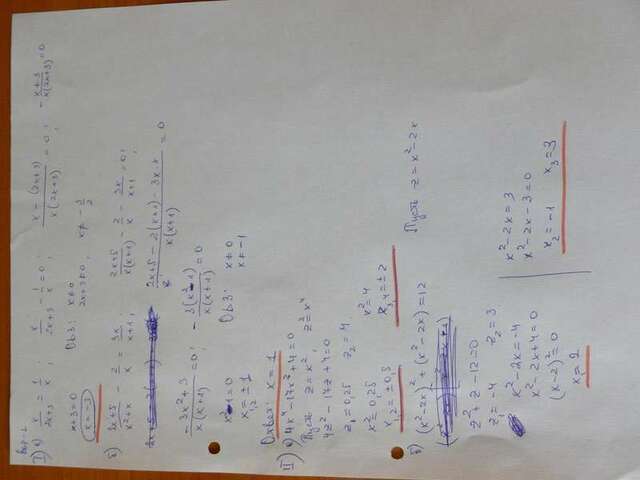 Вар-2
I) а) 1/(2x+3) = 1/x ; 1/(2x+3) - 1/x = 0 ; (x - (2x+3))/(x(2x+3)) = 0 ; - (x+3)/(x(2x+3)) = 0
x+3=0 ОДЗ: x≠0
x=-3 2x+3≠0, x≠ -3/2
б) (2x+5)/(x²+x) - 2/x = 3x/(x+1) ; (2x+5)/(x(x+1)) - 2/x - 3x/(x+1) = 0 ;
(2x+5 - 2(x+1) - 3x·x)/(x(x+1)) = 0
(-3x²+3)/(x·(x+1)) = 0 ; - 3(x²-1)/(x(x+1)) = 0
x²-1=0 ОДЗ: x≠0
x₁,₂ = ±1 x≠-1
Ответ: x=1
II) а) 4x⁴-17x²+4=0
Пусть z=x², z²=x⁴
4z²-17z+4=0
z₁=0,25 z₂=4
x²=0,25 x²=4
x₁,₂=±0,5 x₃,₄=±2
б) (x²-2x)²+(x²-2x)=12 Пусть z=x²-2x
z²+z-12=0
z₁=-4, z₂=3
x²-2x=-4 x²-2x=3
x²-2x+4=0 x²-2x-3=0
(x-2)²=0 x₂=-1 x₃=3
x=2